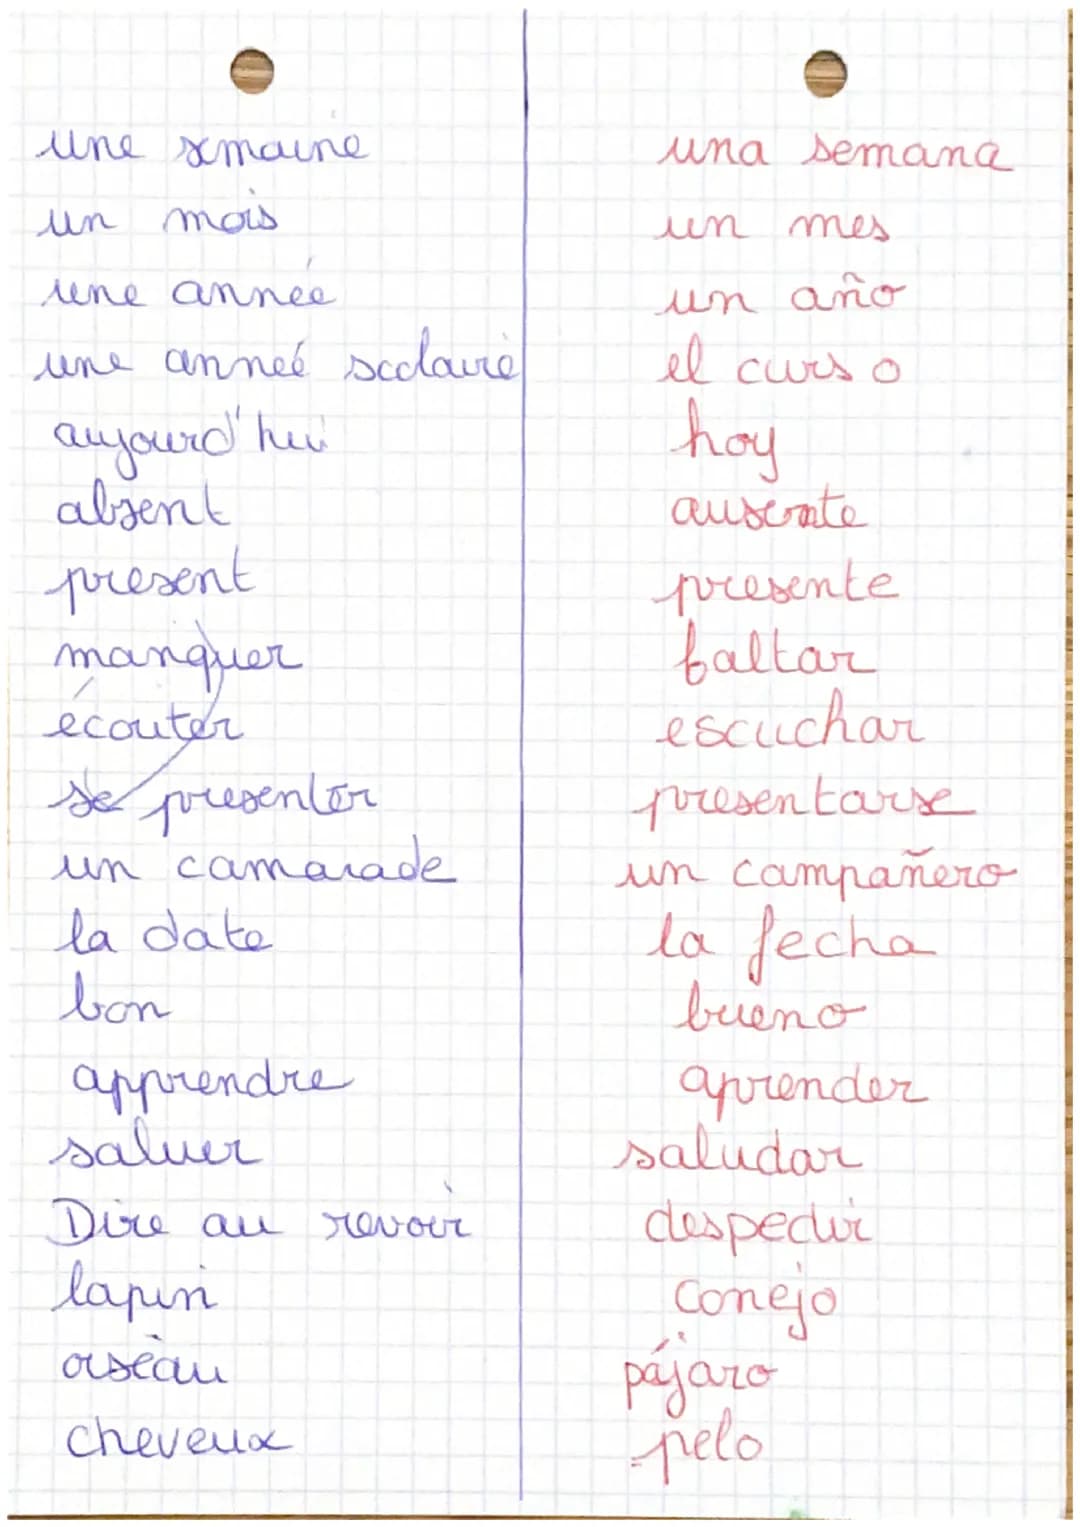 une semaine una semana
un mois un mes
une année un año
une anneé scolaire el curso
aujourd'hui hoy
absent ausente
present presente
manquer faltar
écouter escuchar
se presenter presentarse
un camarade un campañero
la date la fecha
bon bueno
apprendre aprender
saluer saludar
Dire au revoir despedir
lapin conejo
oiseau pájaro
cheveux pelo